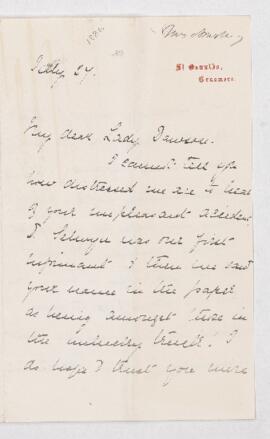 1886
St Oswalds,
Grasmere.
July 27.
My dear Lady Dawson.
I cannot tell you
how distressed we are to hear
of your unpleasant accident
Selwyn was our first
informant & then we saw
your name in the paper
as being amongst those in
the unlucky I
do hope & trust you were